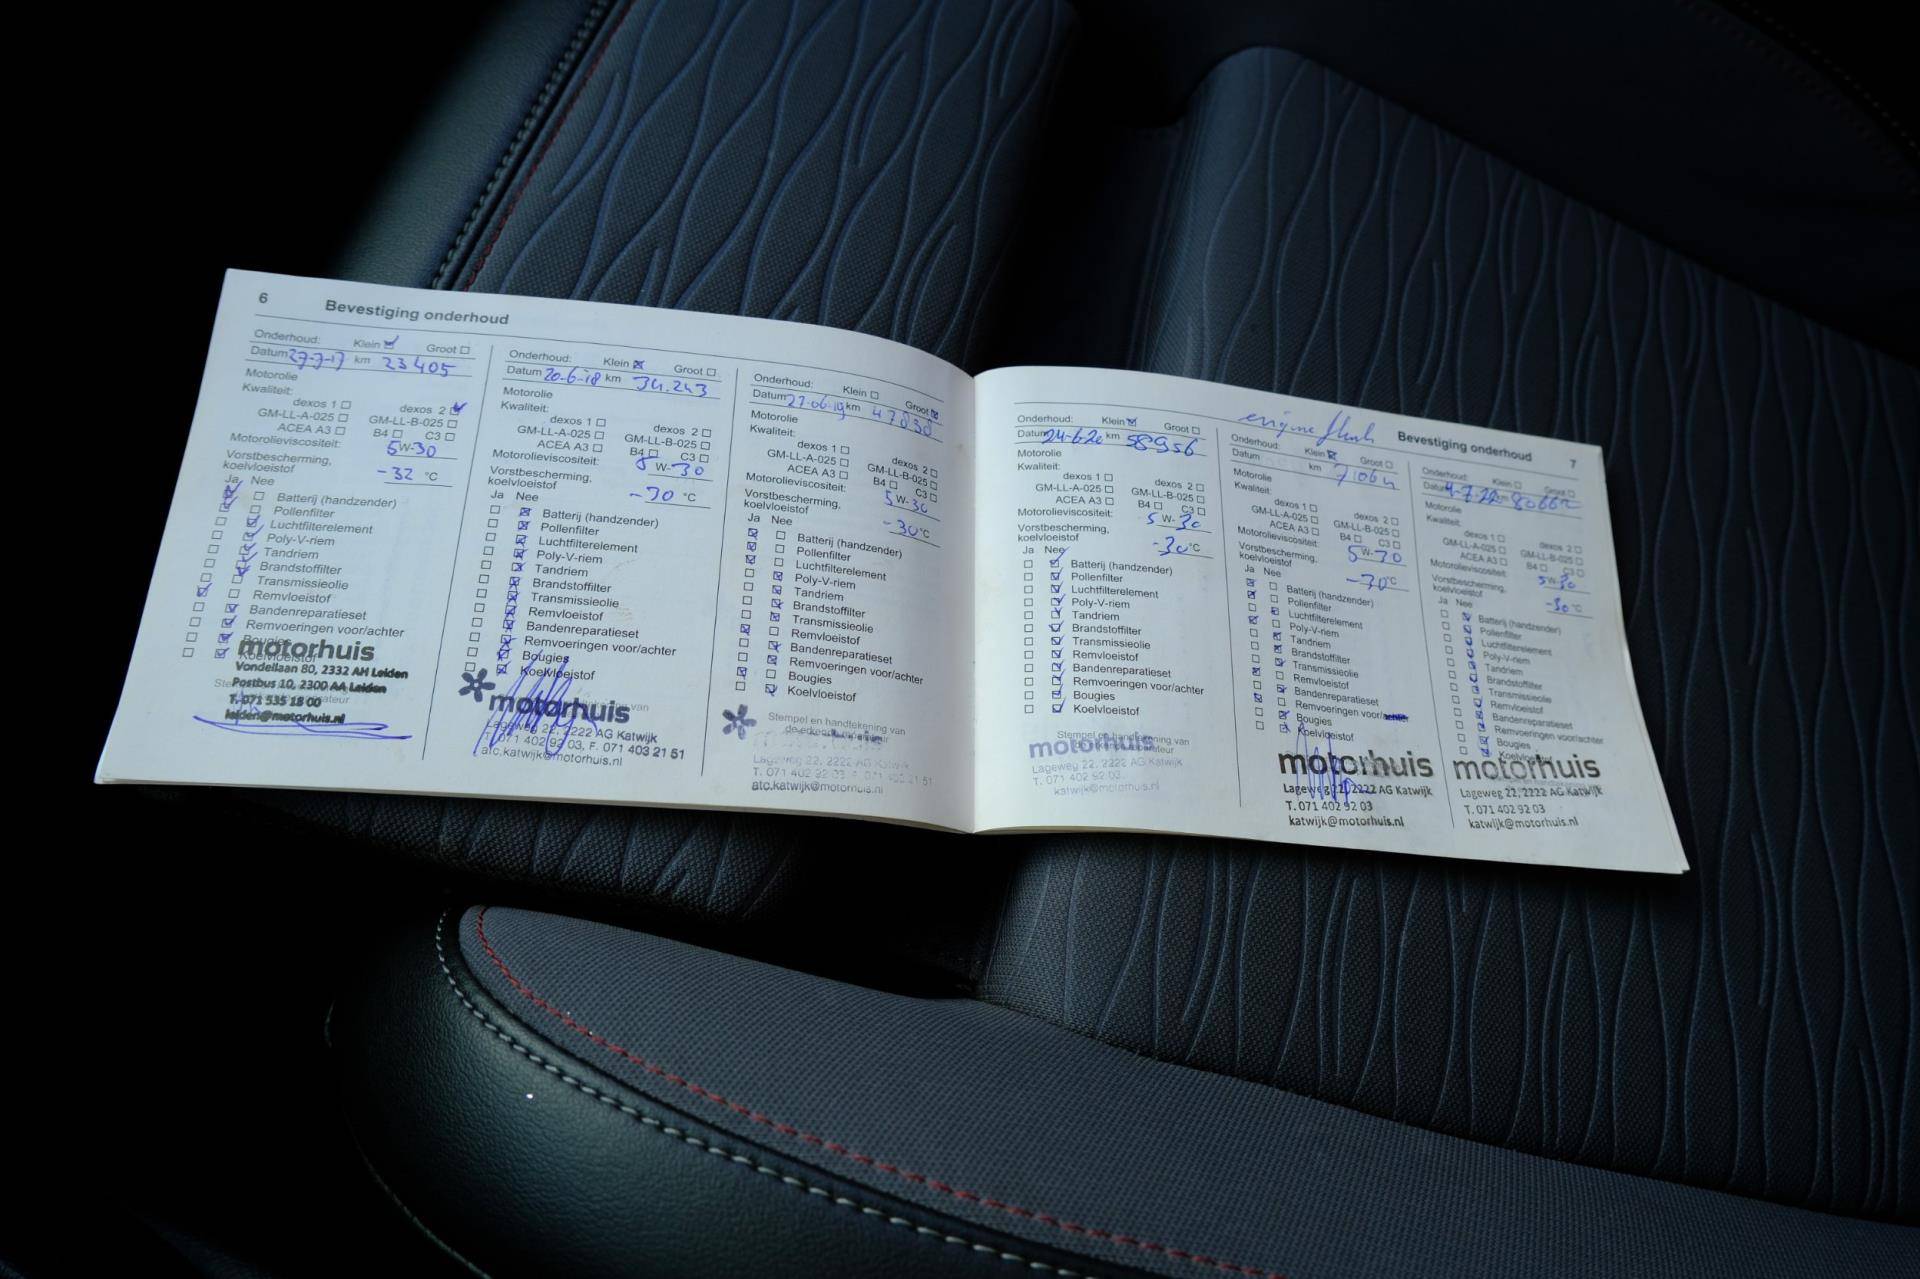 6 Bevestiging onderhoud
Onderhoud: Klein Groot
Datum 27-7-17 km 23405
Motorolie
Kwaliteit:
dexos 1 dexos 2
GM-LL-A-025 GM-LL-B-025
ACEA A3 B4 C3
Motorolieviscositeit: 5W-30
Vorstbescherming,
koelvloeistof -32 °C
Ja Nee
Batterij (handzender)
Pollenfilter
Luchtfilterelement
Poly-V-riem
Tandriem
Brandstoffilter
Transmissieolie
Remvloeistof
Bandenreparatieset
Remvoeringen voor/achter
Bougies
Koelvloeistof
motorhuis
Vondellaan 80, 2332 AH Leiden
Postbus 10, 2300 AA Leiden
T. 071 535 18 00
leiden@motorhuis.nl
Onderhoud: Klein Groot
Datum 20-6-18 km 34.243
Motorolie
Kwaliteit:
dexos 1 dexos 2
GM-LL-A-025 GM-LL-B-025
ACEA A3 B4 C3
Motorolieviscositeit: 5W-30
Vorstbescherming,
koelvloeistof -30 °C
Ja Nee
Batterij (handzender)
Pollenfilter
Luchtfilterelement
Poly-V-riem
Tandriem
Brandstoffilter
Transmissieolie
Remvloeistof
Bandenreparatieset
Remvoeringen voor/achter
Bougies
Koelvloeistof
motorhuis
Lageweg 22, 2222 AG Katwijk
T. 071 402 92 03, F. 071 403 21 51
atc.katwijk@motorhuis.nl
Onderhoud: Klein Groot
Datum 27-06-19 km 47838
Motorolie
Kwaliteit:
dexos 1 dexos 2
GM-LL-A-025 GM-LL-B-025
ACEA A3 B4 C3
Motorolieviscositeit: 5W-30
Vorstbescherming,
koelvloeistof -30°C
Ja Nee
Batterij (handzender)
Pollenfilter
Luchtfilterelement
Poly-V-riem
Tandriem
Brandstoffilter
Transmissieolie
Remvloeistof
Bandenreparatieset
Remvoeringen voor/achter
Bougies
Koelvloeistof
Stempel en handtekening van
de erkende reparateur
Lageweg 22, 2222 AG Katwijk
T. 071 402 92 03, F. 071 402 21 51
atc.katwijk@motorhuis.nl
engine flush
Bevestiging onderhoud 7
Onderhoud: Klein Groot
Datum 24-6-20 km 58956
Motorolie
Kwaliteit:
dexos 1 dexos 2
GM-LL-A-025 GM-LL-B-025
ACEA A3 B4 C3
Motorolieviscositeit: 5W-30
Vorstbescherming,
koelvloeistof -30°C
Ja Nee
Batterij (handzender)
Pollenfilter
Luchtfilterelement
Poly-V-riem
Tandriem
Brandstoffilter
Transmissieolie
Remvloeistof
Bandenreparatieset
Remvoeringen voor/achter
Bougies
Koelvloeistof
Stempel en handtekening van
motorhuis
Lageweg 22, 2222 AG Katwijk
T. 071 402 92 03
katwijk@motorhuis.nl
Onderhoud: Klein Groot
Datum km
Motorolie
Kwaliteit:
dexos 1 dexos 2
GM-LL-A-025 GM-LL-B-025
ACEA A3 B4 C3
Motorolieviscositeit: 5W-30
Vorstbescherming,
koelvloeistof -30°C
Ja Nee
Batterij (handzender)
Pollenfilter
Luchtfilterelement
Poly-V-riem
Tandriem
Brandstoffilter
Transmissieolie
Remvloeistof
Bandenreparatieset
Remvoeringen voor/
Bougies
Koelvloeistof
motorhuis
Lageweg 22, 2222 AG Katwijk
T. 071 402 92 03
katwijk@motorhuis.nl
Onderhoud: Klein Groot
Datum 4-7-22 km 80662
Motorolie
Kwaliteit:
dexos 1 dexos 2
GM-LL-A-025 GM-LL-B-025
ACEA A3 B4 C3
Motorolieviscositeit: 5W-30
Vorstbescherming,
koelvloeistof -30°C
Ja Nee
Batterij (handzender)
Pollenfilter
Luchtfilterelement
Poly-V-riem
Tandriem
Brandstoffilter
Transmissieolie
Remvloeistof
Bandenreparatieset
Remvoeringen voor/achter
Bougies
Koelvloeistof
motorhuis
Lageweg 22, 2222 AG Katwijk
T. 071 402 92 03
katwijk@motorhuis.nl